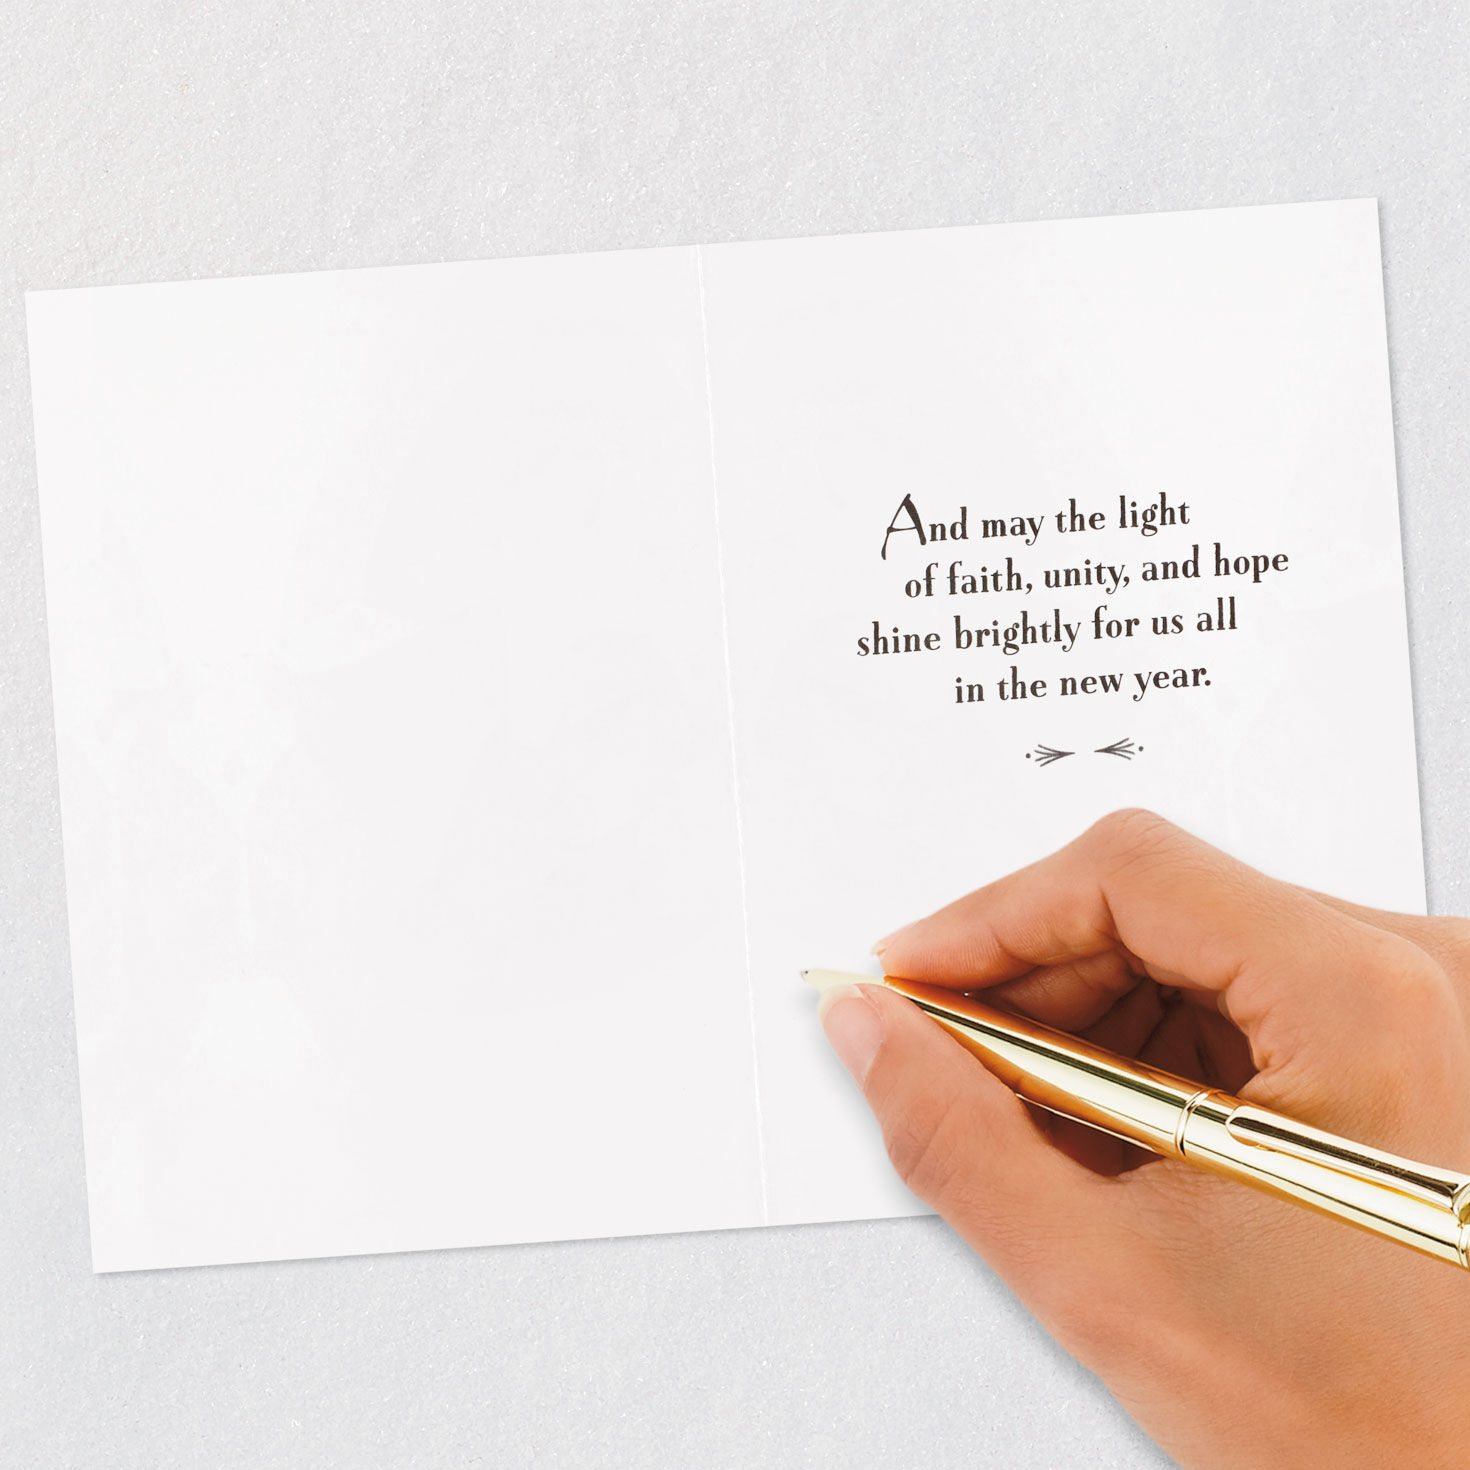 And may the light
of faith, unity, and hope
shine brightly for us all
in the new year.